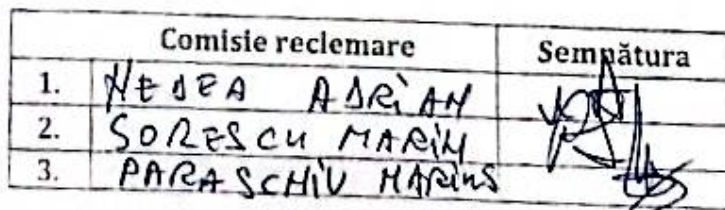 Comisie reclemare Semnătura
1. NEDEA ADRIAN
2. SORESCU MARIN
3. PARASCHIV MARIUS